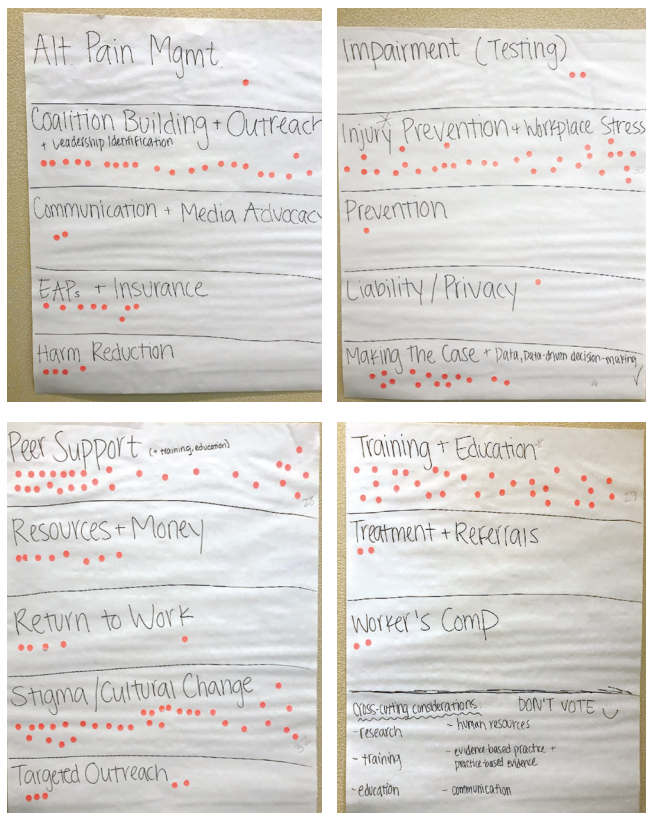 Alt. Pain Mgmt.
Coalition Building + Outreach
+ Leadership Identification
Communication + Media Advocacy
EAPs + Insurance
Harm Reduction
Impairment (Testing)
Injury Prevention + Workplace Stress
30
Prevention
Liability/Privacy
Making the Case + Data, Data-driven decision-making
Peer Support (+ training, education)
28
Resources + Money
Return to Work
Stigma/Cultural Change
Targeted Outreach
Training + Education
Treatment + Referrals
Worker's Comp
Cross-cutting considerations: DON'T VOTE
- research - human resources
- training - evidence-based practice +
practice-based evidence
- education - communication